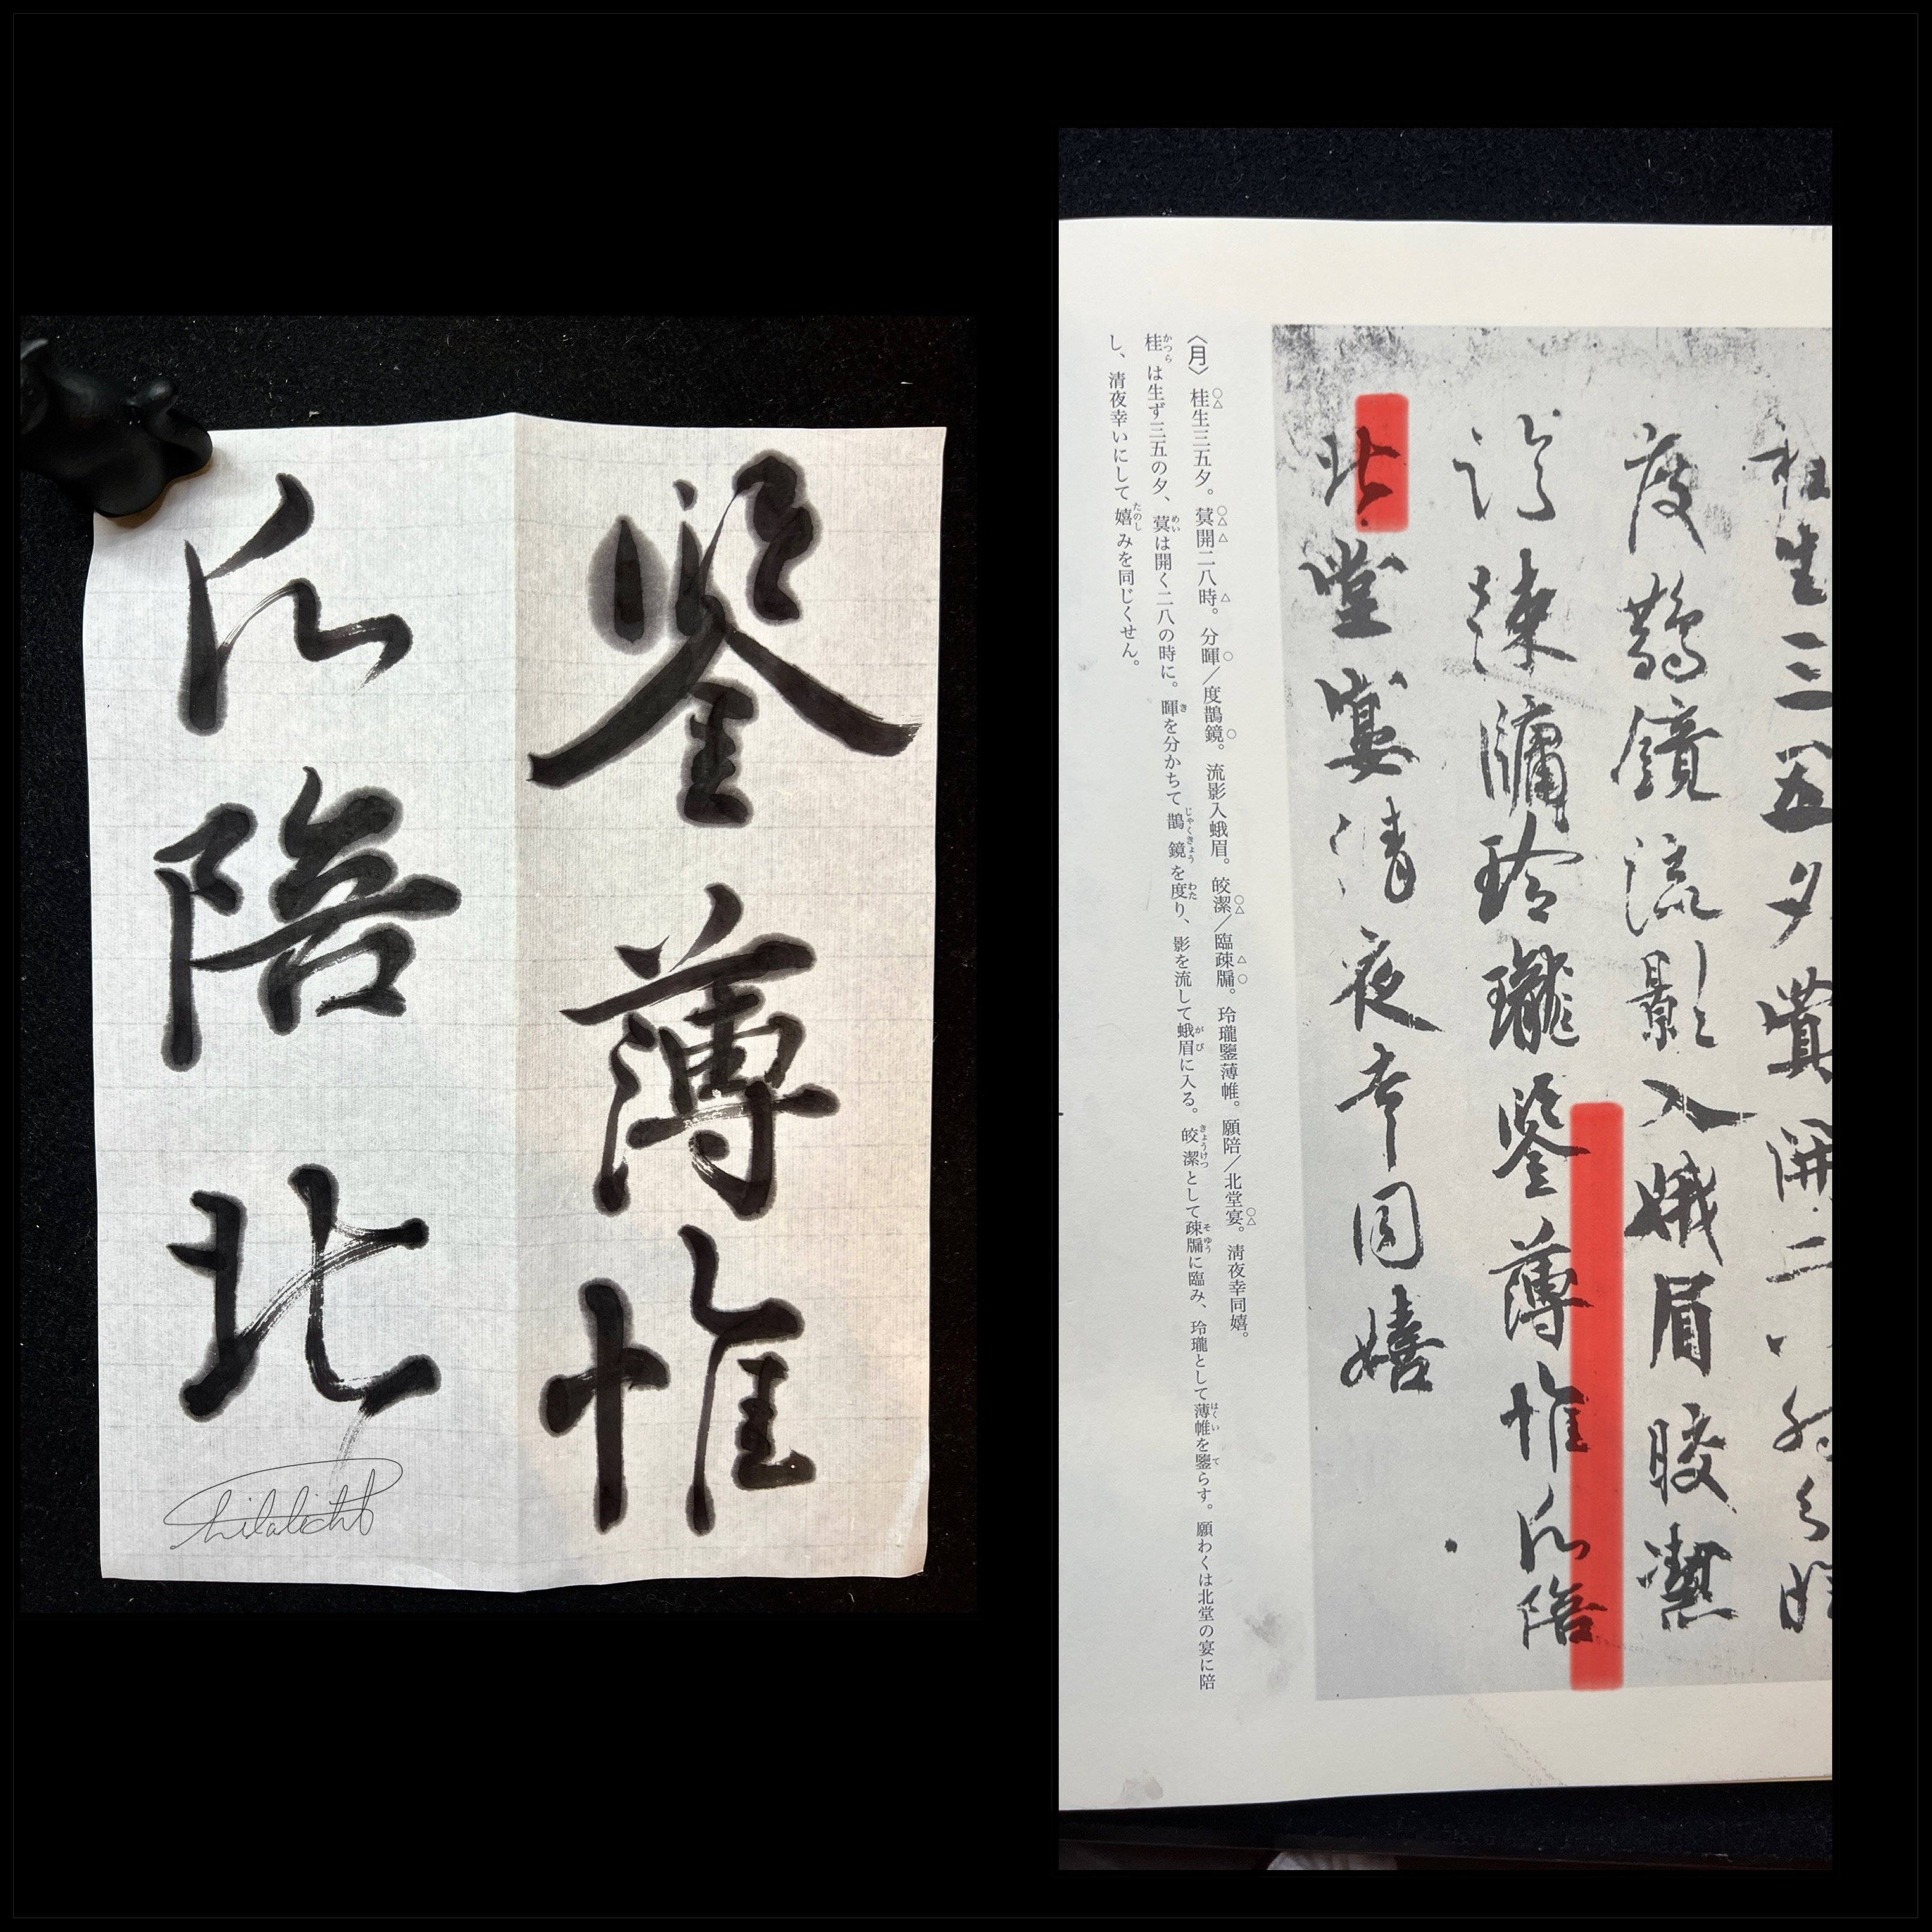 鑒薄帷
願陪北
桂生三五夕蓂開二八時分暉
度鵲鏡流影入娥眉晈潔
臨疎牖玲瓏鑒薄帷願陪
北堂宴清夜幸同嬉
〈月〉 桂生三五夕。蓂開二八時。分暉／度鵲鏡。流影入蛾眉。皎潔／臨疎牖。玲瓏鑒薄帷。願陪／北堂宴。淸夜幸同嬉。
桂は生ず三五の夕、蓂は開く二八の時に。暉を分かちて鵲鏡を度り、影を流して蛾眉に入る。皎潔として疎牖に臨み、玲瓏として薄帷を鑒らす。願わくは北堂の宴に陪
し、清夜幸いにして嬉みを同じくせん。